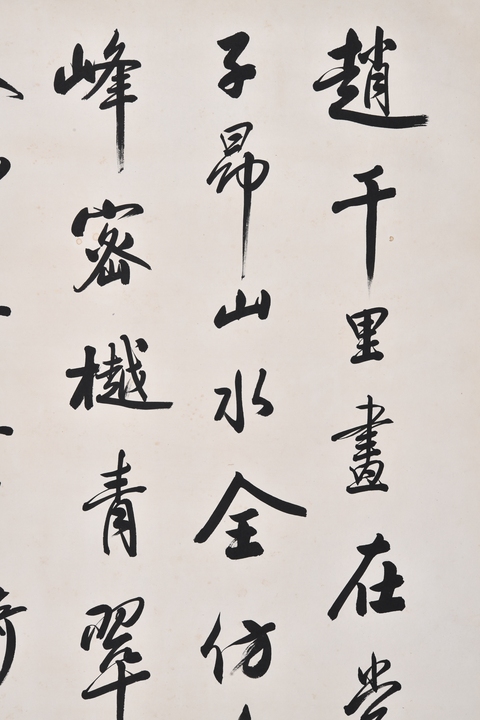 趙千里畫在
子昂山水全仿
峰密樾青翠